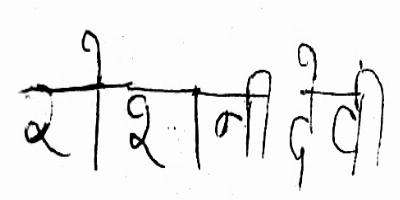 रोशनी देवी